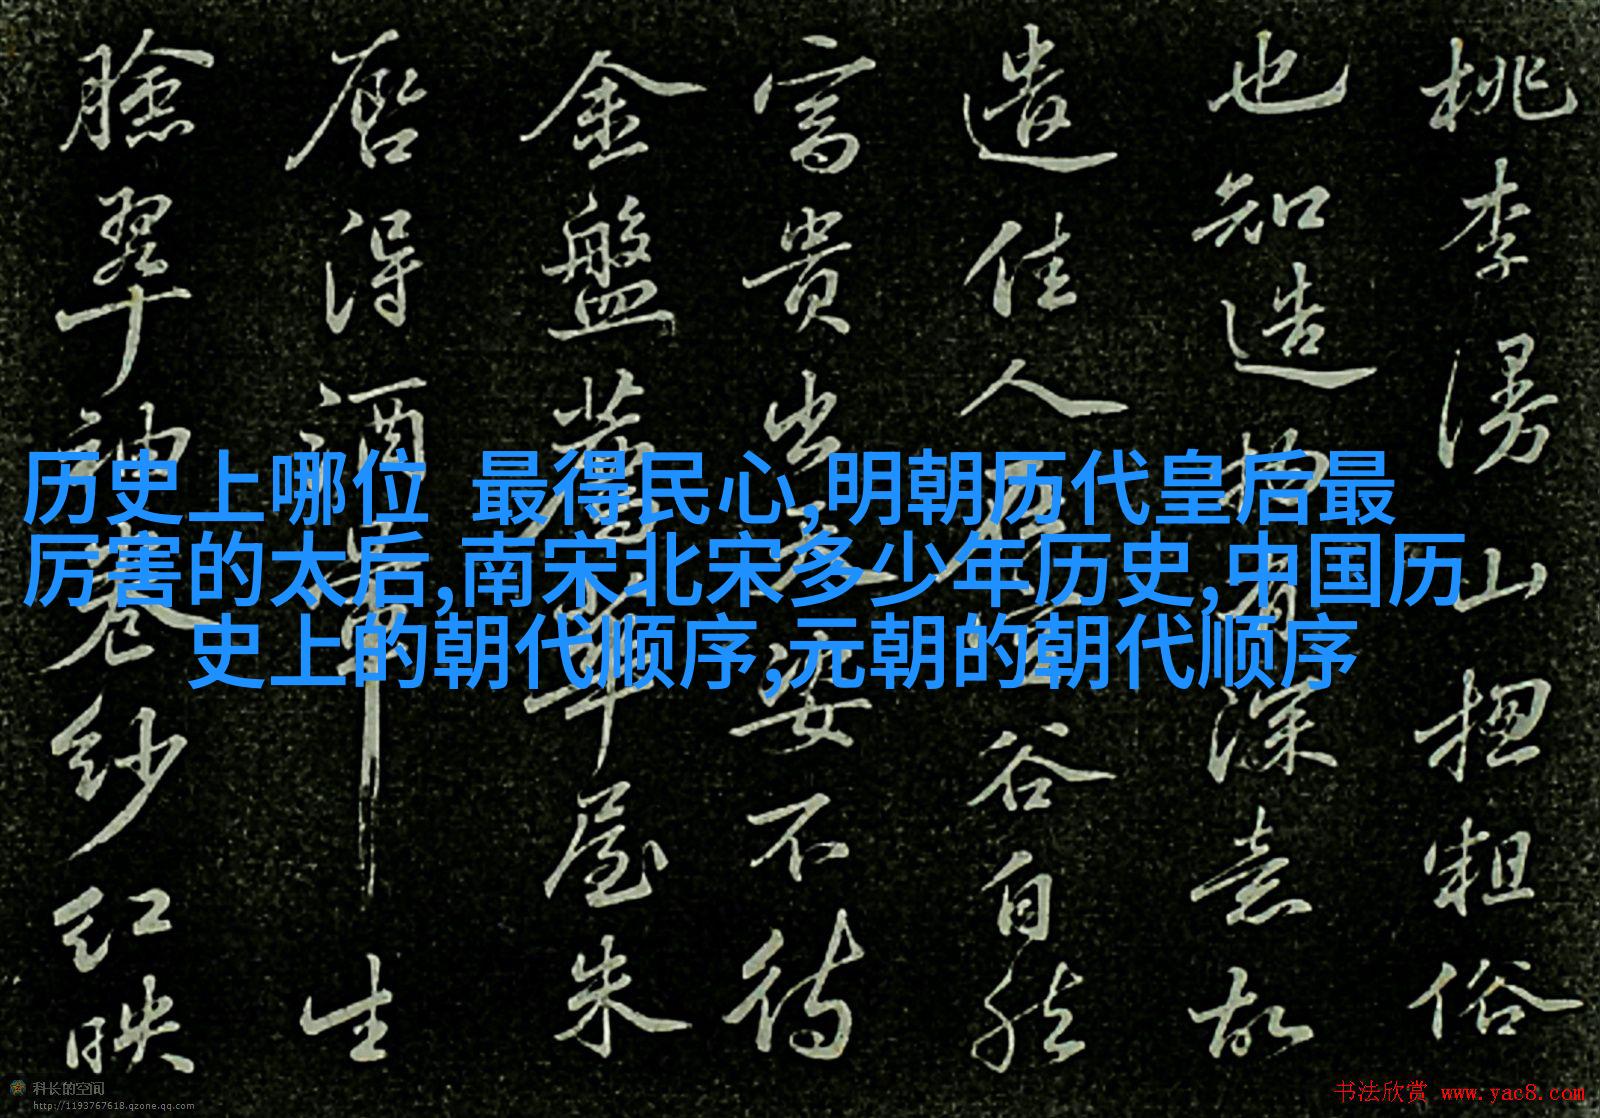 历史上哪位 最得民心,明朝历代皇后最
厉害的太后,南宋北宋多少年历史,中国历
史上的朝代顺序,元朝的朝代顺序
桃李漫山揔粗俗
也知造物有深意故
遣佳人在空谷自然
富貴出天姿不待
金盤薦華屋朱
唇得酒暈生
臉翠袖卷紗紅映
科长的空间
http://1193767618.qzone.qq.com
书法欣赏 www.yac8.com